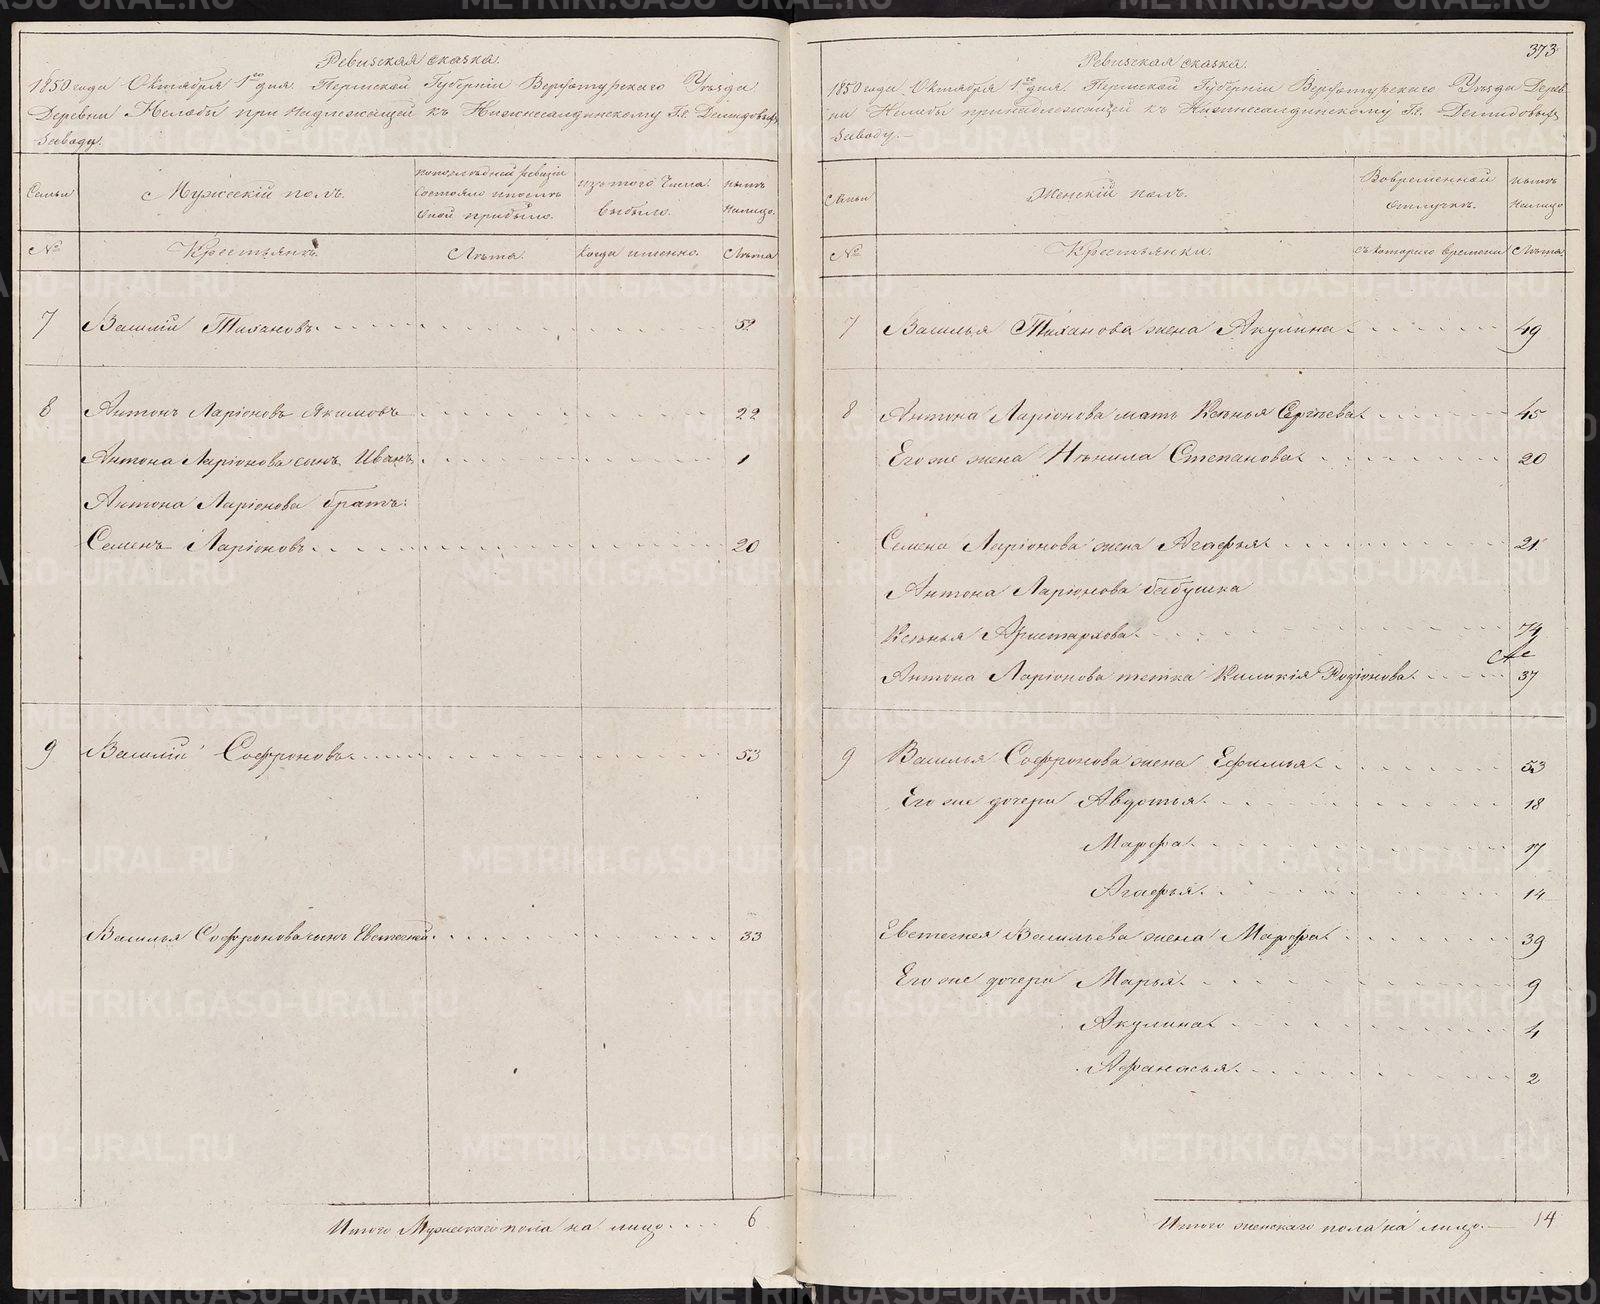 Ревизская сказка.
1850 года Октября 1го дня. Пермской Губерніи Верхотурскаго Уезда
Деревни Нелобы принадлежащей къ Нижнесалдинскому Гг. Демидовыхъ
Заводу.
Семьи
Мужескій полъ.
по последней ревизіи состояло и после оной прибыло.
изъ того числа выбыло.
ныне на лицо.
№
Крестьянъ.
Лета.
Когда именно.
Лета
7 Василій Тихановъ. 52
8 Антонъ Ларіоновъ Якимовъ 22
Антона Ларіонова сынъ Иванъ. 1
Антона Ларіонова братъ:
Семенъ Ларіоновъ. 20
9 Василій Софроновъ. 53
Василья Софронова сынъ Евстегней. 33
Итого Мужескаго пола на лицо. 6
373
Ревизская сказка.
1850 года Октября 1го дня. Пермской Губерніи Верхотурскаго Уезда Дерев
ни Нелобы принадлежащей къ Нижнесалдинскому Гг. Демидовыхъ
Заводу.
Семьи
Женскій полъ.
Во временной отлучке.
ныне на лицо
№
Крестьянки.
съ котораго времени
Лета.
7 Василья Тиханова жена Акулина. 49
8 Антона Ларіонова мать Ксенья Сергеева. 45
Его же жена Ненила Степанова. 20
Семена Ларіонова жена Агафья. 21
Антона Ларіонова бабушка
Ксенья Аристархова. 74
Антона Ларіонова тетка Киликія Родіонова. 37
9 Василья Софронова жена Ефимья. 53
Его же дочери Авдотья. 18
Марфа. 17
Агафья. 14
Евстегнея Васильева жена Марфа. 39
Его же дочери Марья. 9
Акулина. 4
Афанасья. 2
Итого женскаго пола на лицо. 14
METRIKI.GASO-URAL.RU